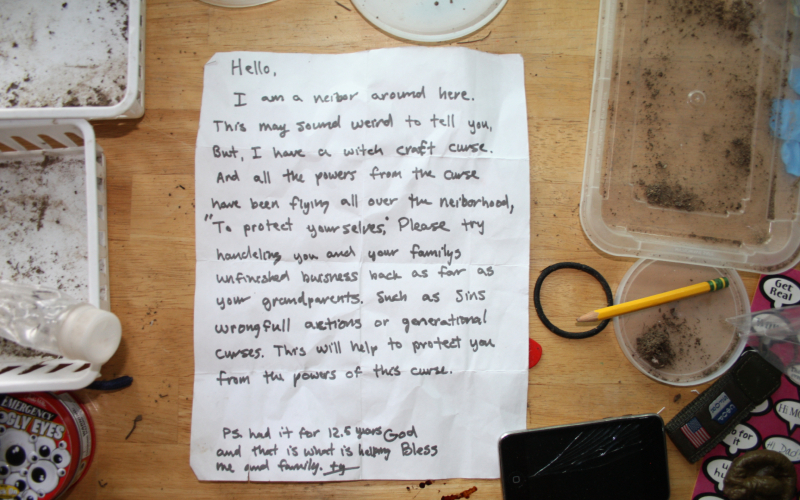 Hello,
I am a neibor around here.
This may sound weird to tell you,
But, I have a witch craft curse.
And all the powers from the curse
have been flying all over the neiborhood,
"To protect yourselves," Please try
handeling you and your familys
unfinished buisness back as far as
your grandparents. Such as Sins
wrongfull actions or generational
curses. This will help to protect you
from the powers of this curse.
PS. had it for 12.5 years God
and that is what is helping Bless
me and family. ty
EMERGENCY
GOOGLY EYES
Get
Real
Hi, Dad